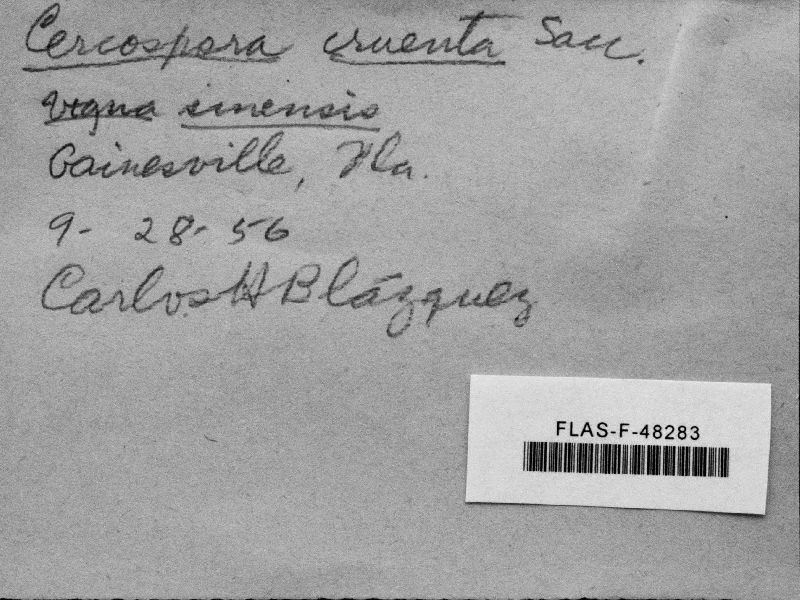 Cercospora cruenta Sacc.
Vigna sinensis
Gainesville, Fla.
9- 28- 56
Carlos H Blázquez
FLAS-F-48283